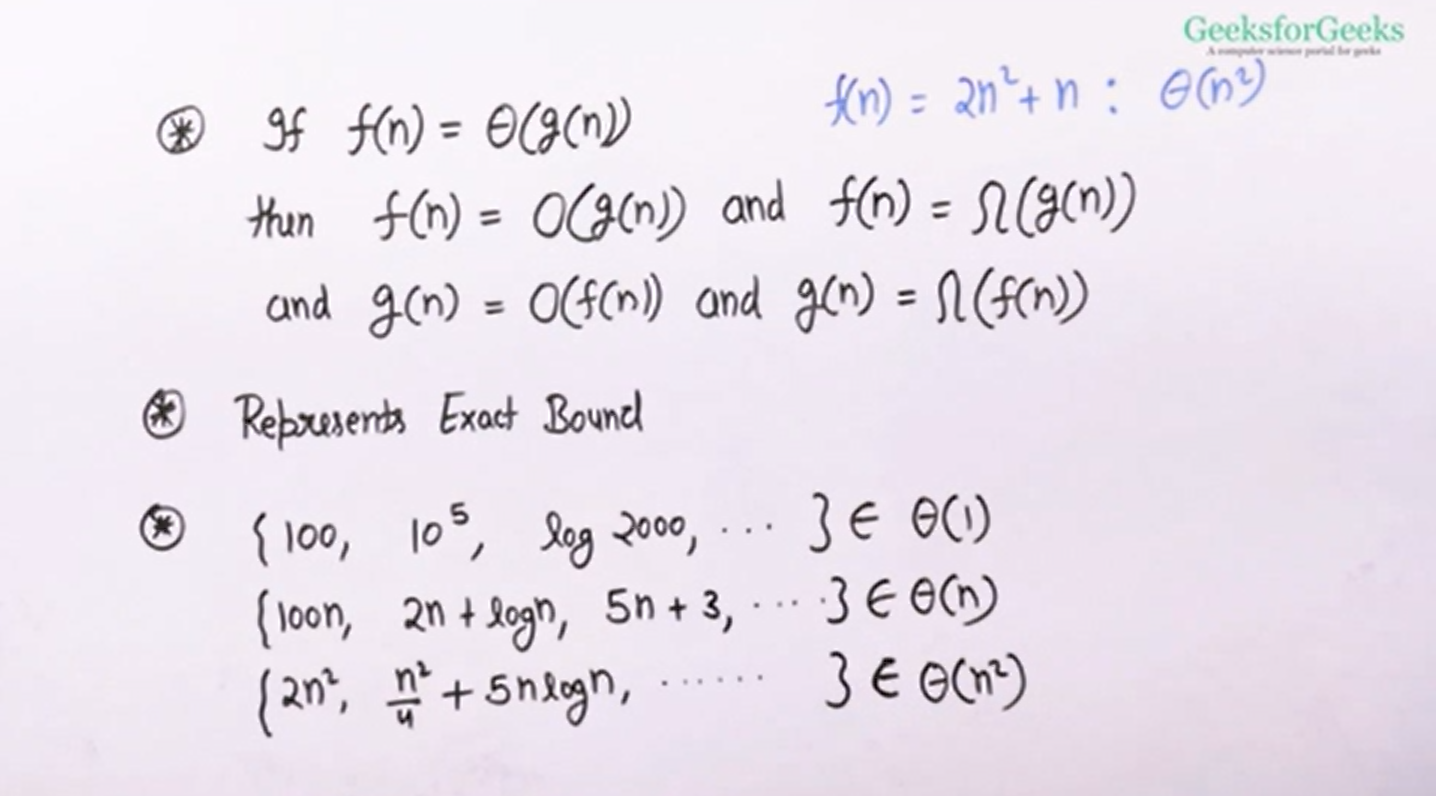 GeeksforGeeks
A computer science portal for geeks
f(n) = 2n²+ n : θ(n²)
⊛ If f(n) = θ(g(n))
then f(n) = O(g(n)) and f(n) = Ω(g(n))
and g(n) = O(f(n)) and g(n) = Ω(f(n))
⊛ Represents Exact Bound
⊛ {100, 10⁵, log 2000, ... } ∈ θ(1)
{100n, 2n + logn, 5n + 3, .... } ∈ θ(n)
{2n², n²/4 + 5nlogn, ...... } ∈ θ(n²)